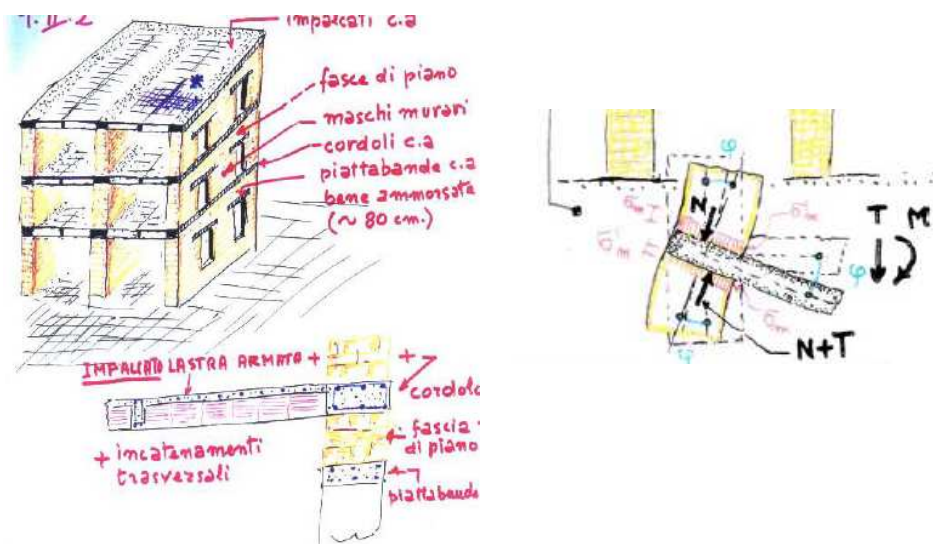 impalcati c.a
fasce di piano
maschi murari
cordoli c.a
piattabande c.a
bene ammorsate
(~ 80 cm.)
IMPALCATO LASTRA ARMATA +
+
cordolo
fascia
di piano
+ incatenamenti
trasversali
piattabande
φ
N
σm
T M
φ
σm
N+T
φ